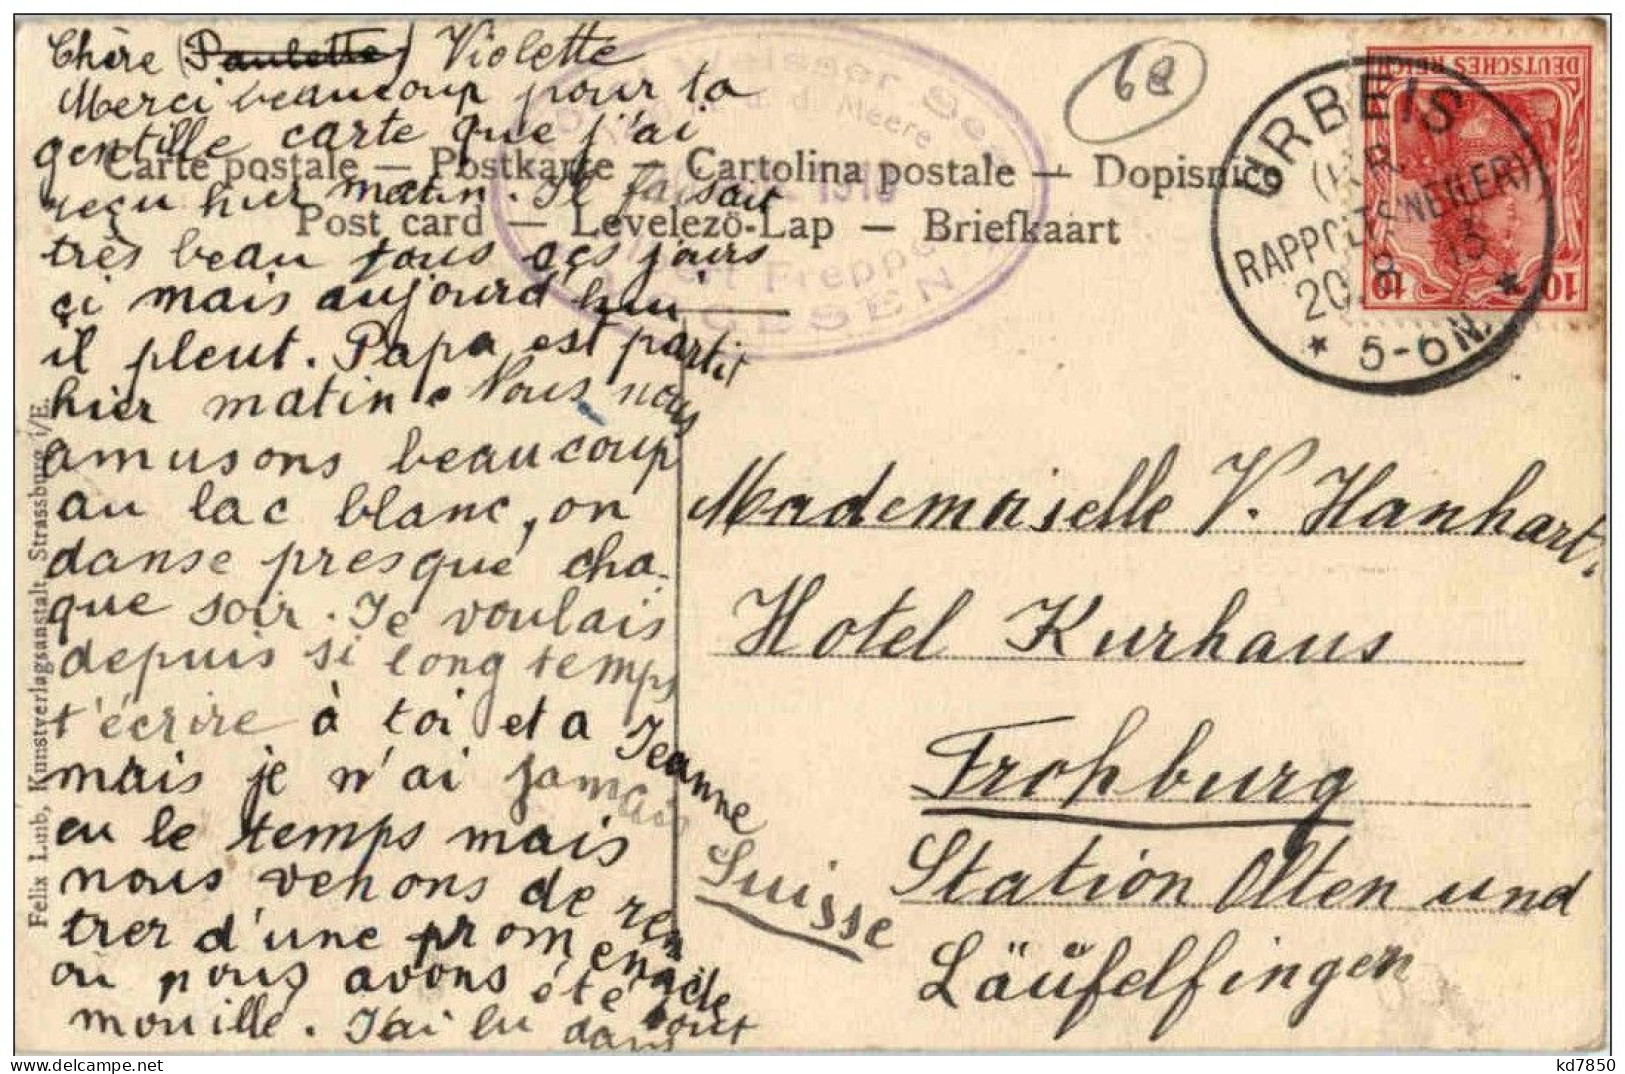 Chère (Paulette) Violette
Merci beaucoup pour ta
gentille carte que j'ai
reçu hier matin. Il faisait
très beau tous ces jours
çi mais aujourd'hui
il pleut. Papa est partit
hier matin. Nous nous
amusons beaucoup
au lac blanc, on
danse presque cha-
que soir. Je voulais
depuis si longtemps
t'écrire à toi et a Jeanne
mais je n'ai jamais
eu le temps mais
nous venons de ren
trer d'une promenade
où nous avons été tout
mouille. J'ai lu dans
Carte postale — Postkarte — Cartolina postale — Dopisnice
Post card — Levelező-Lap — Briefkaart
Weisser See
d. Meere
Freppel
68
URBEIS
(KR.
RAPPOLTSWEILER)
20.8 13
* 5-6N. *
DEUTSCHES REICH
10 10
Mademoiselle V. Hanhart.
Hotel Kurhaus
Frohburg
Station Olten und
Läufelfingen
Suisse
Felix Luib, Kunstverlagsanstalt Strassburg i/E.
kd7850